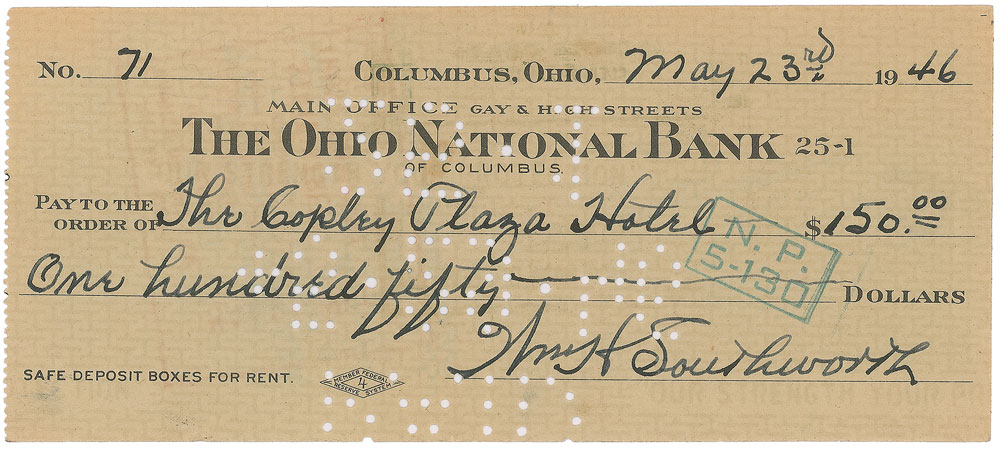 No. 71 Columbus, Ohio, May 23rd 1946
MAIN OFFICE GAY & HIGH STREETS
THE OHIO NATIONAL BANK 25-1
OF COLUMBUS.
PAY TO THE ORDER OF The Copley Plaza Hotel $150.00
N. P.
5-130
One hundred fifty DOLLARS
Wm H Southworth
SAFE DEPOSIT BOXES FOR RENT.
MEMBER FEDERAL
4
RESERVE SYSTEM